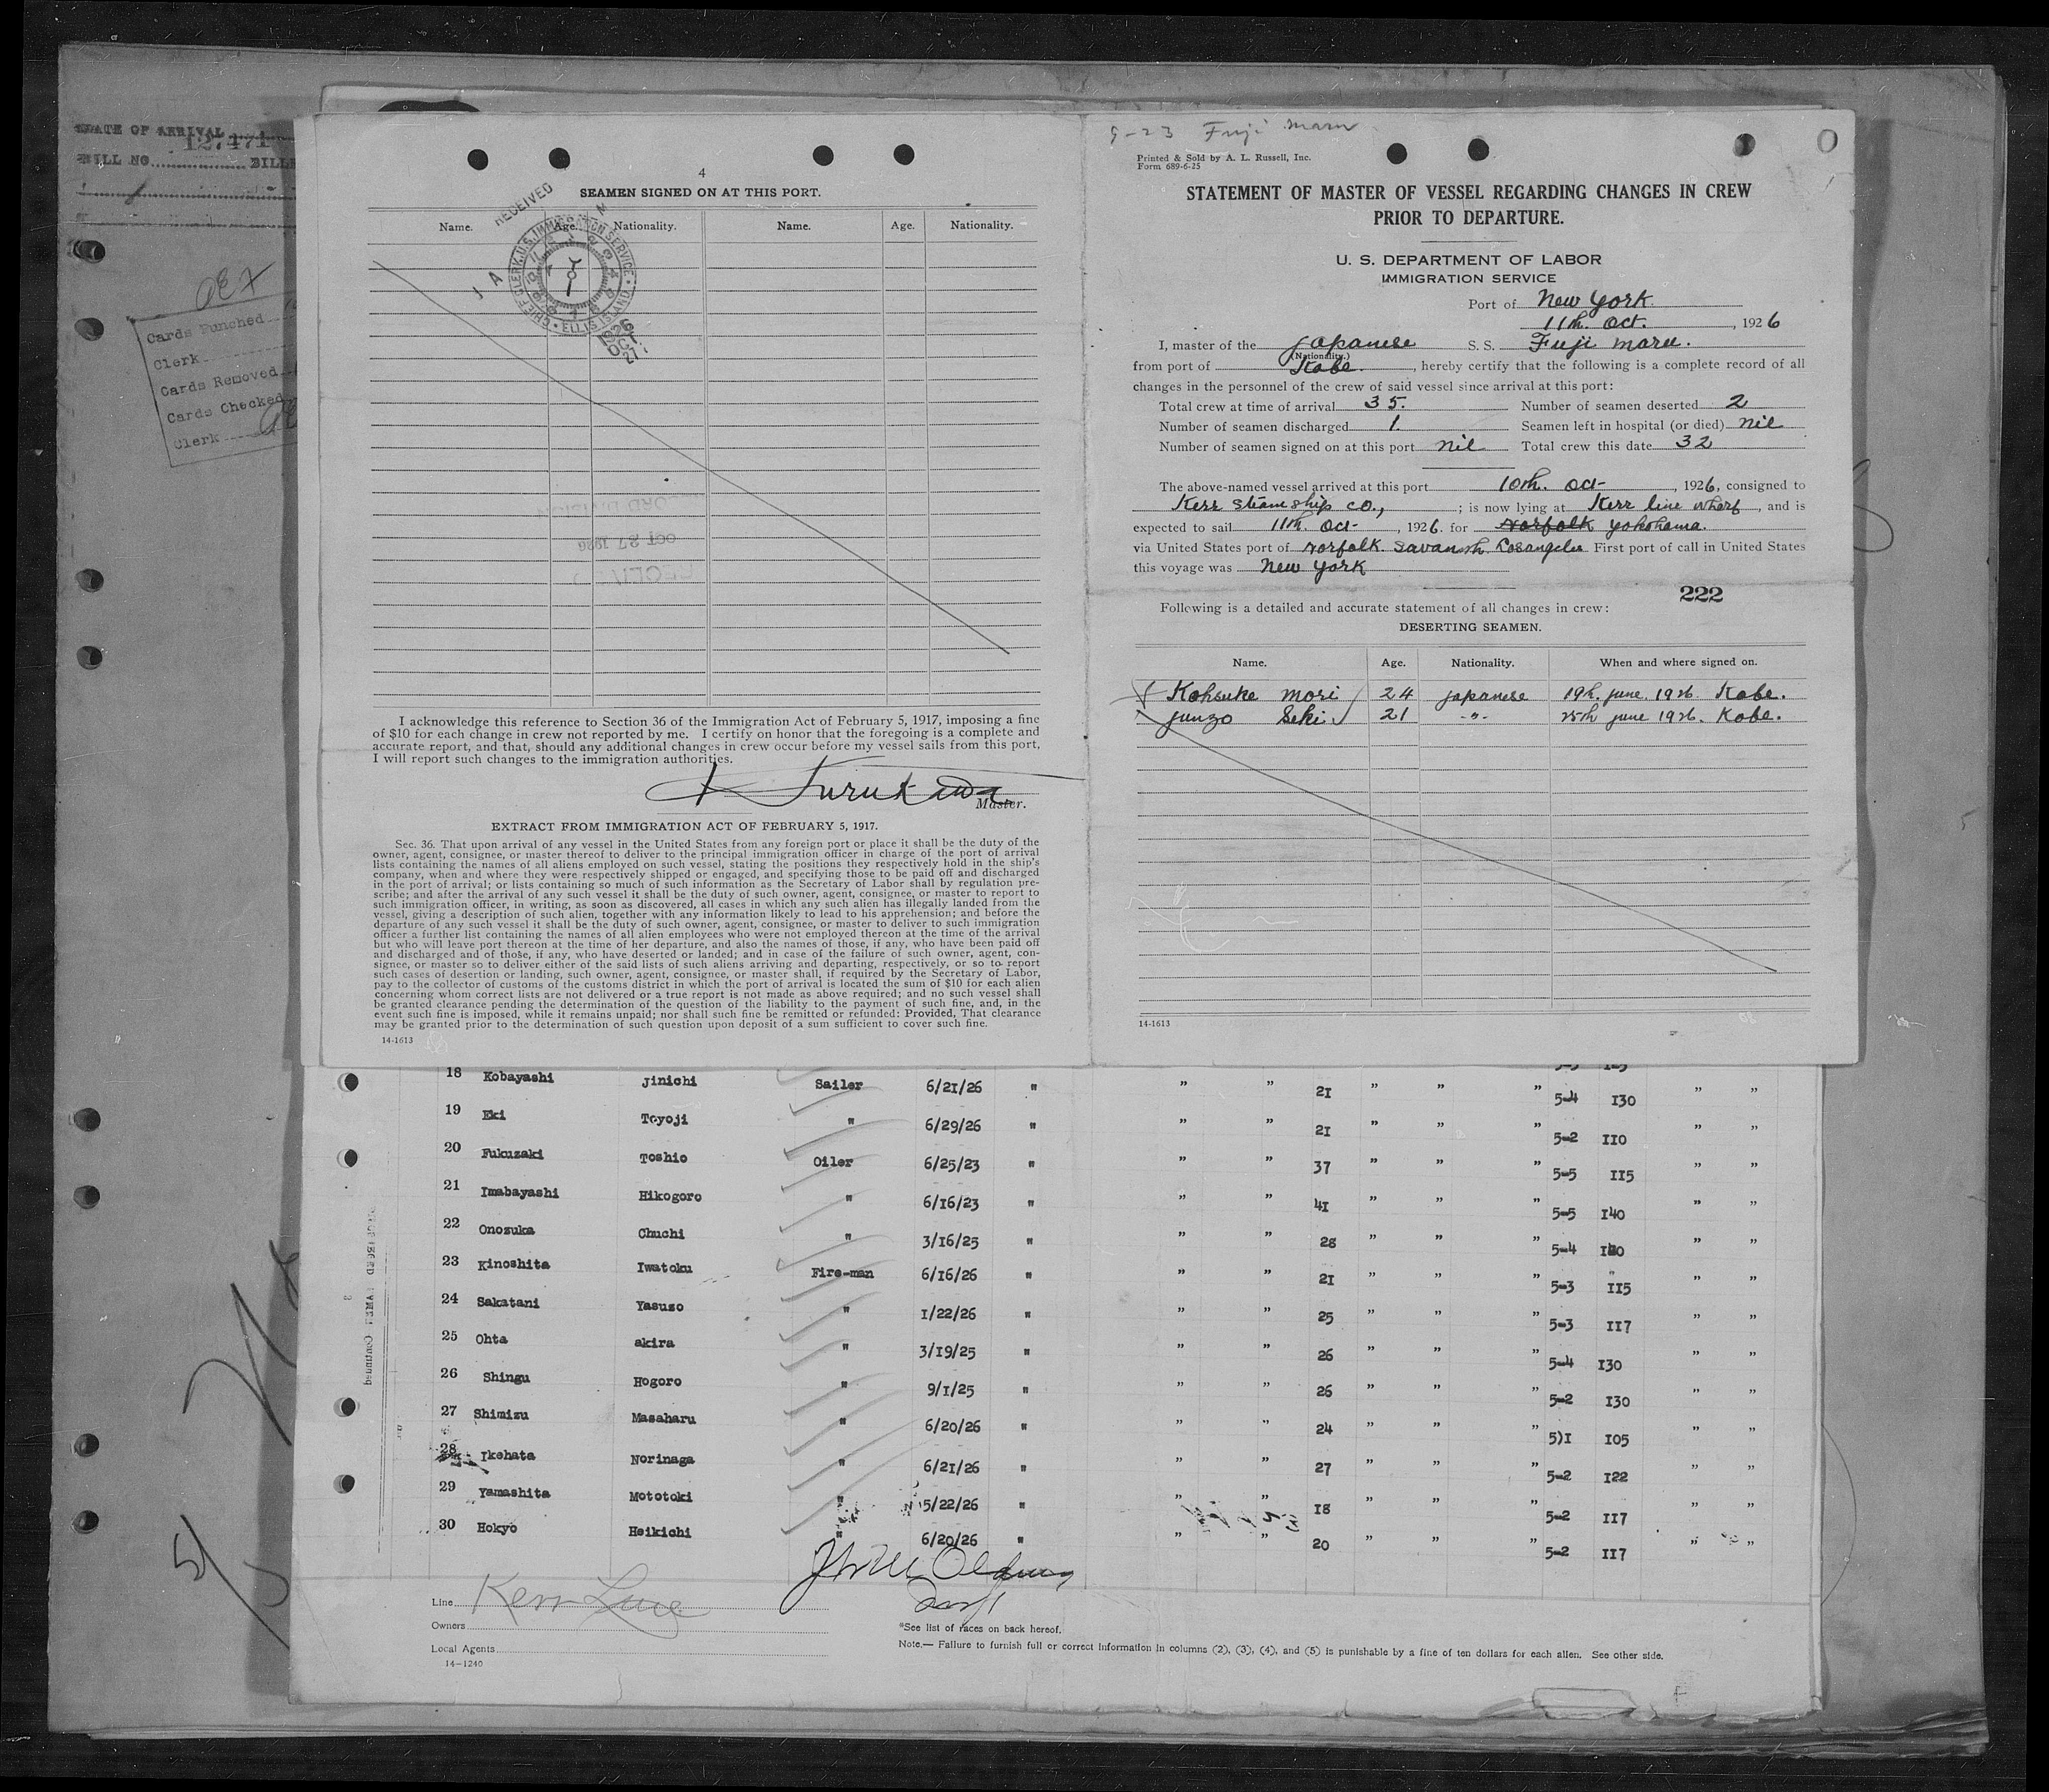 DATE OF ARRIVAL
127471
BILL NO.
Cards Punched
Clerk
Cards Removed
Cards Checked
Clerk
4
SEAMEN SIGNED ON AT THIS PORT.
Name. Age. Nationality. Name. Age. Nationality.
RECEIVED
CHIEF CLERK, U.S. IMMIGRATION SERVICE
ELLIS ISLAND
OCT 27 1926
I acknowledge this reference to Section 36 of the Immigration Act of February 5, 1917, imposing a fine
of $10 for each change in crew not reported by me. I certify on honor that the foregoing is a complete and
accurate report, and that, should any additional changes in crew occur before my vessel sails from this port,
I will report such changes to the immigration authorities.
Furukawa
Master.
EXTRACT FROM IMMIGRATION ACT OF FEBRUARY 5, 1917.
Sec. 36. That upon arrival of any vessel in the United States from any foreign port or place it shall be the duty of the
owner, agent, consignee, or master thereof to deliver to the principal immigration officer in charge of the port of arrival
lists containing the names of all aliens employed on such vessel, stating the positions they respectively hold in the ship's
company, when and where they were respectively shipped or engaged, and specifying those to be paid off and discharged
in the port of arrival; or lists containing so much of such information as the Secretary of Labor shall by regulation pre-
scribe; and after the arrival of any such vessel it shall be the duty of such owner, agent, consignee, or master to report to
such immigration officer, in writing, as soon as discovered, all cases in which any such alien has illegally landed from the
vessel, giving a description of such alien, together with any information likely to lead to his apprehension; and before the
departure of any such vessel it shall be the duty of such owner, agent, consignee, or master to deliver to such immigration
officer a further list containing the names of all alien employees who were not employed thereon at the time of the arrival
but who will leave port thereon at the time of her departure, and also the names of those, if any, who have been paid off
and discharged and of those, if any, who have deserted or landed; and in case of the failure of such owner, agent, con-
signee, or master so to deliver either of the said lists of such aliens arriving and departing, respectively, or so to report
such cases of desertion or landing, such owner, agent, consignee, or master shall, if required by the Secretary of Labor,
pay to the collector of customs of the customs district in which the port of arrival is located the sum of $10 for each alien
concerning whom correct lists are not delivered or a true report is not made as above required; and no such vessel shall
be granted clearance pending the determination of the question of the liability to the payment of such fine, and, in the
event such fine is imposed, while it remains unpaid; nor shall such fine be remitted or refunded: Provided, That clearance
may be granted prior to the determination of such question upon deposit of a sum sufficient to cover such fine.
14-1613
9-23 Fuji Maru
Printed & Sold by A. L. Russell, Inc.
Form 689-6-25
STATEMENT OF MASTER OF VESSEL REGARDING CHANGES IN CREW
PRIOR TO DEPARTURE.
U. S. DEPARTMENT OF LABOR
IMMIGRATION SERVICE
Port of New York
11th. Oct. , 1926
I, master of the Japanese S. S. Fuji maru.
(Nationality.)
from port of Kobe. , hereby certify that the following is a complete record of all
changes in the personnel of the crew of said vessel since arrival at this port:
Total crew at time of arrival 35. Number of seamen deserted 2
Number of seamen discharged 1. Seamen left in hospital (or died) nil
Number of seamen signed on at this port nil Total crew this date 32
The above-named vessel arrived at this port 10th. Oct- , 1926, consigned to
Kerr Steam ship co., ; is now lying at Kerr line wharf , and is
expected to sail 11th. Oct- , 1926. for Norfolk Yokohama.
via United States port of Norfolk. Savannh. Losangeles First port of call in United States
this voyage was New York
222
Following is a detailed and accurate statement of all changes in crew:
DESERTING SEAMEN.
Name. Age. Nationality. When and where signed on.
Kohsuke Mori 24 Japanese 19th. June. 1926. Kobe.
Junzo Seki 21 -"- 25th June 1926. Kobe.
14-1613
18 Kobayashi Jinichi Sailer 6/21/26 " " " 21 " " " 5-4 130 " "
19 Eki Toyoji " 6/29/26 " " " 21 " " " 5-2 110 " "
20 Fukuzaki Toshio Oiler 6/25/23 " " " 37 " " " 5-5 115 " "
21 Imabayashi Hikogoro " 6/16/23 " " " 41 " " " 5-5 140 " "
22 Onozuka Chuchi " 3/16/25 " " " 28 " " " 5-4 " "
23 Kinoshita Iwatoku Fire-man 6/16/26 " " " 21 " " " 5-3 115 " "
24 Sakatani Yasuzo " 1/22/26 " " " 25 " " " 5-3 117 " "
25 Ohta akira " 3/19/25 " " " 26 " " " 5-4 130 " "
26 Shingu Hogoro " 9/1/25 " " " 26 " " " 5-2 130 " "
27 Shimizu Masaharu " 6/20/26 " " " 24 " " " 5)1 105 " "
28 Ikehata Norinaga " 6/21/26 " " " 27 " " " 5-2 122 " "
29 Yamashita Mototoki " 5/22/26 " " " 18 " " " 5-2 117 " "
30 Hokyo Heikichi " 6/20/26 " " " 20 " " " 5-2 117 " "
Line Kerr Line
Owners
Local Agents
14-1240
*See list of races on back hereof.
Note.— Failure to furnish full or correct information in columns (2), (3), (4), and (5) is punishable by a fine of ten dollars for each alien. See other side.